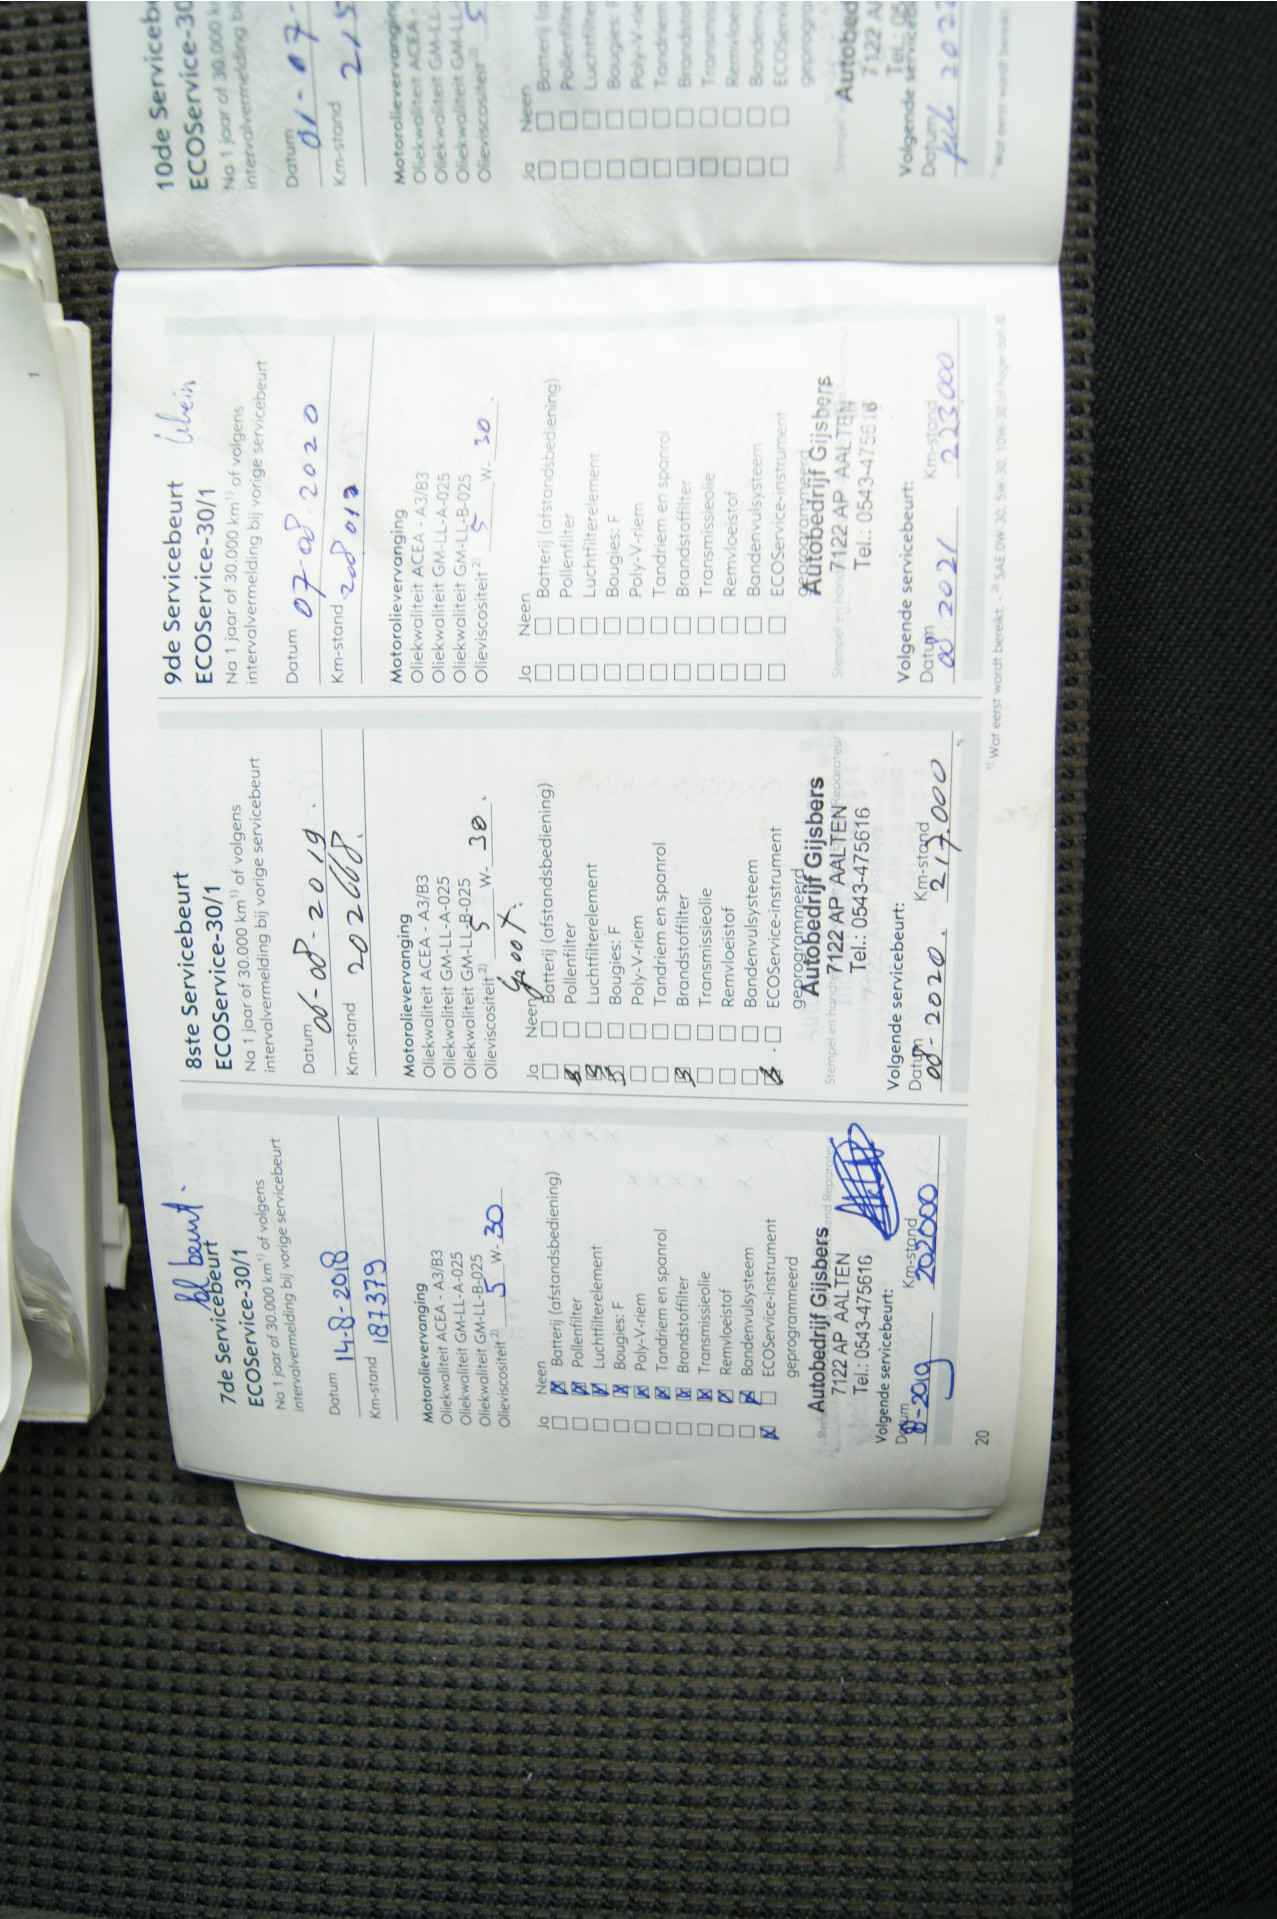 kl beurt.
7de Servicebeurt
ECOService-30/1
Na 1 jaar of 30.000 km¹⁾ of volgens
intervalvermelding bij vorige servicebeurt
Datum 14-8-2018
Km-stand 187379
Motorolievervanging
Oliekwaliteit ACEA - A3/B3
Oliekwaliteit GM-LL-A-025
Oliekwaliteit GM-LL-B-025
Olieviscositeit²⁾ 5 W- 30
Ja Neen
Batterij (afstandsbediening)
Pollenfilter
Luchtfilterelement
Bougies: F
Poly-V-riem
Tandriem en spanrol
Brandstoffilter
Transmissieolie
Remvloeistof
Bandenvulsysteem
ECOService-instrument
geprogrammeerd
Autobedrijf Gijsbers
7122 AP AALTEN
Tel.: 0543-475616
Volgende servicebeurt:
Datum Km-stand
8-2019 202000
20
8ste Servicebeurt
ECOService-30/1
Na 1 jaar of 30.000 km¹⁾ of volgens
intervalvermelding bij vorige servicebeurt
Datum 06-08-2019.
Km-stand 202668.
Motorolievervanging
Oliekwaliteit ACEA - A3/B3
Oliekwaliteit GM-LL-A-025
Oliekwaliteit GM-LL-B-025
Olieviscositeit²⁾ 5 W- 30.
Groot.
Ja Neen
Batterij (afstandsbediening)
Pollenfilter
Luchtfilterelement
Bougies: F
Poly-V-riem
Tandriem en spanrol
Brandstoffilter
Transmissieolie
Remvloeistof
Bandenvulsysteem
ECOService-instrument
geprogrammeerd
Stempel en Reparateur
Autobedrijf Gijsbers
7122 AP AALTEN
Tel.: 0543-475616
Volgende servicebeurt:
Datum Km-stand
08-2020. 217.000
9de Servicebeurt
Klein
ECOService-30/1
Na 1 jaar of 30.000 km¹⁾ of volgens
intervalvermelding bij vorige servicebeurt
Datum 07-08-2020
Km-stand 208012
Motorolievervanging
Oliekwaliteit ACEA - A3/B3
Oliekwaliteit GM-LL-A-025
Oliekwaliteit GM-LL-B-025
Olieviscositeit²⁾ 5 W- 30.
Ja Neen
Batterij (afstandsbediening)
Pollenfilter
Luchtfilterelement
Bougies: F
Poly-V-riem
Tandriem en spanrol
Brandstoffilter
Transmissieolie
Remvloeistof
Bandenvulsysteem
ECOService-instrument
geprogrammeerd
Autobedrijf Gijsbers
7122 AP AALTEN
Tel.: 0543-475616
Volgende servicebeurt:
Datum Km-stand
08 2021 223000
¹⁾ Wat eerst wordt bereikt.
10de Serviceb
ECOService-30
Na 1 jaar of 30.000 k
intervalvermelding bi
Datum 01-07-
Km-stand 215
Motorolievervanging
Oliekwaliteit ACEA -
Oliekwaliteit GM-LL-
Oliekwaliteit GM-LL
Olieviscositeit²⁾ 5
Ja Neen
Batterij (a
Pollenfilte
Luchtfilter
Bougies: F
Poly-V-rie
Tandriem
Brandstof
Transmis
Remvloei
Bandenv
ECOServi
geprogra
Autobed
7122 A
Tel.: 05
Volgende service
Datum
juli 2022
1